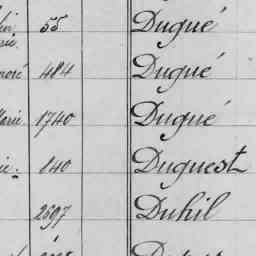 55 Dugué
484 Dugué
1740 Dugué
840 Duguest
2597 Duhil